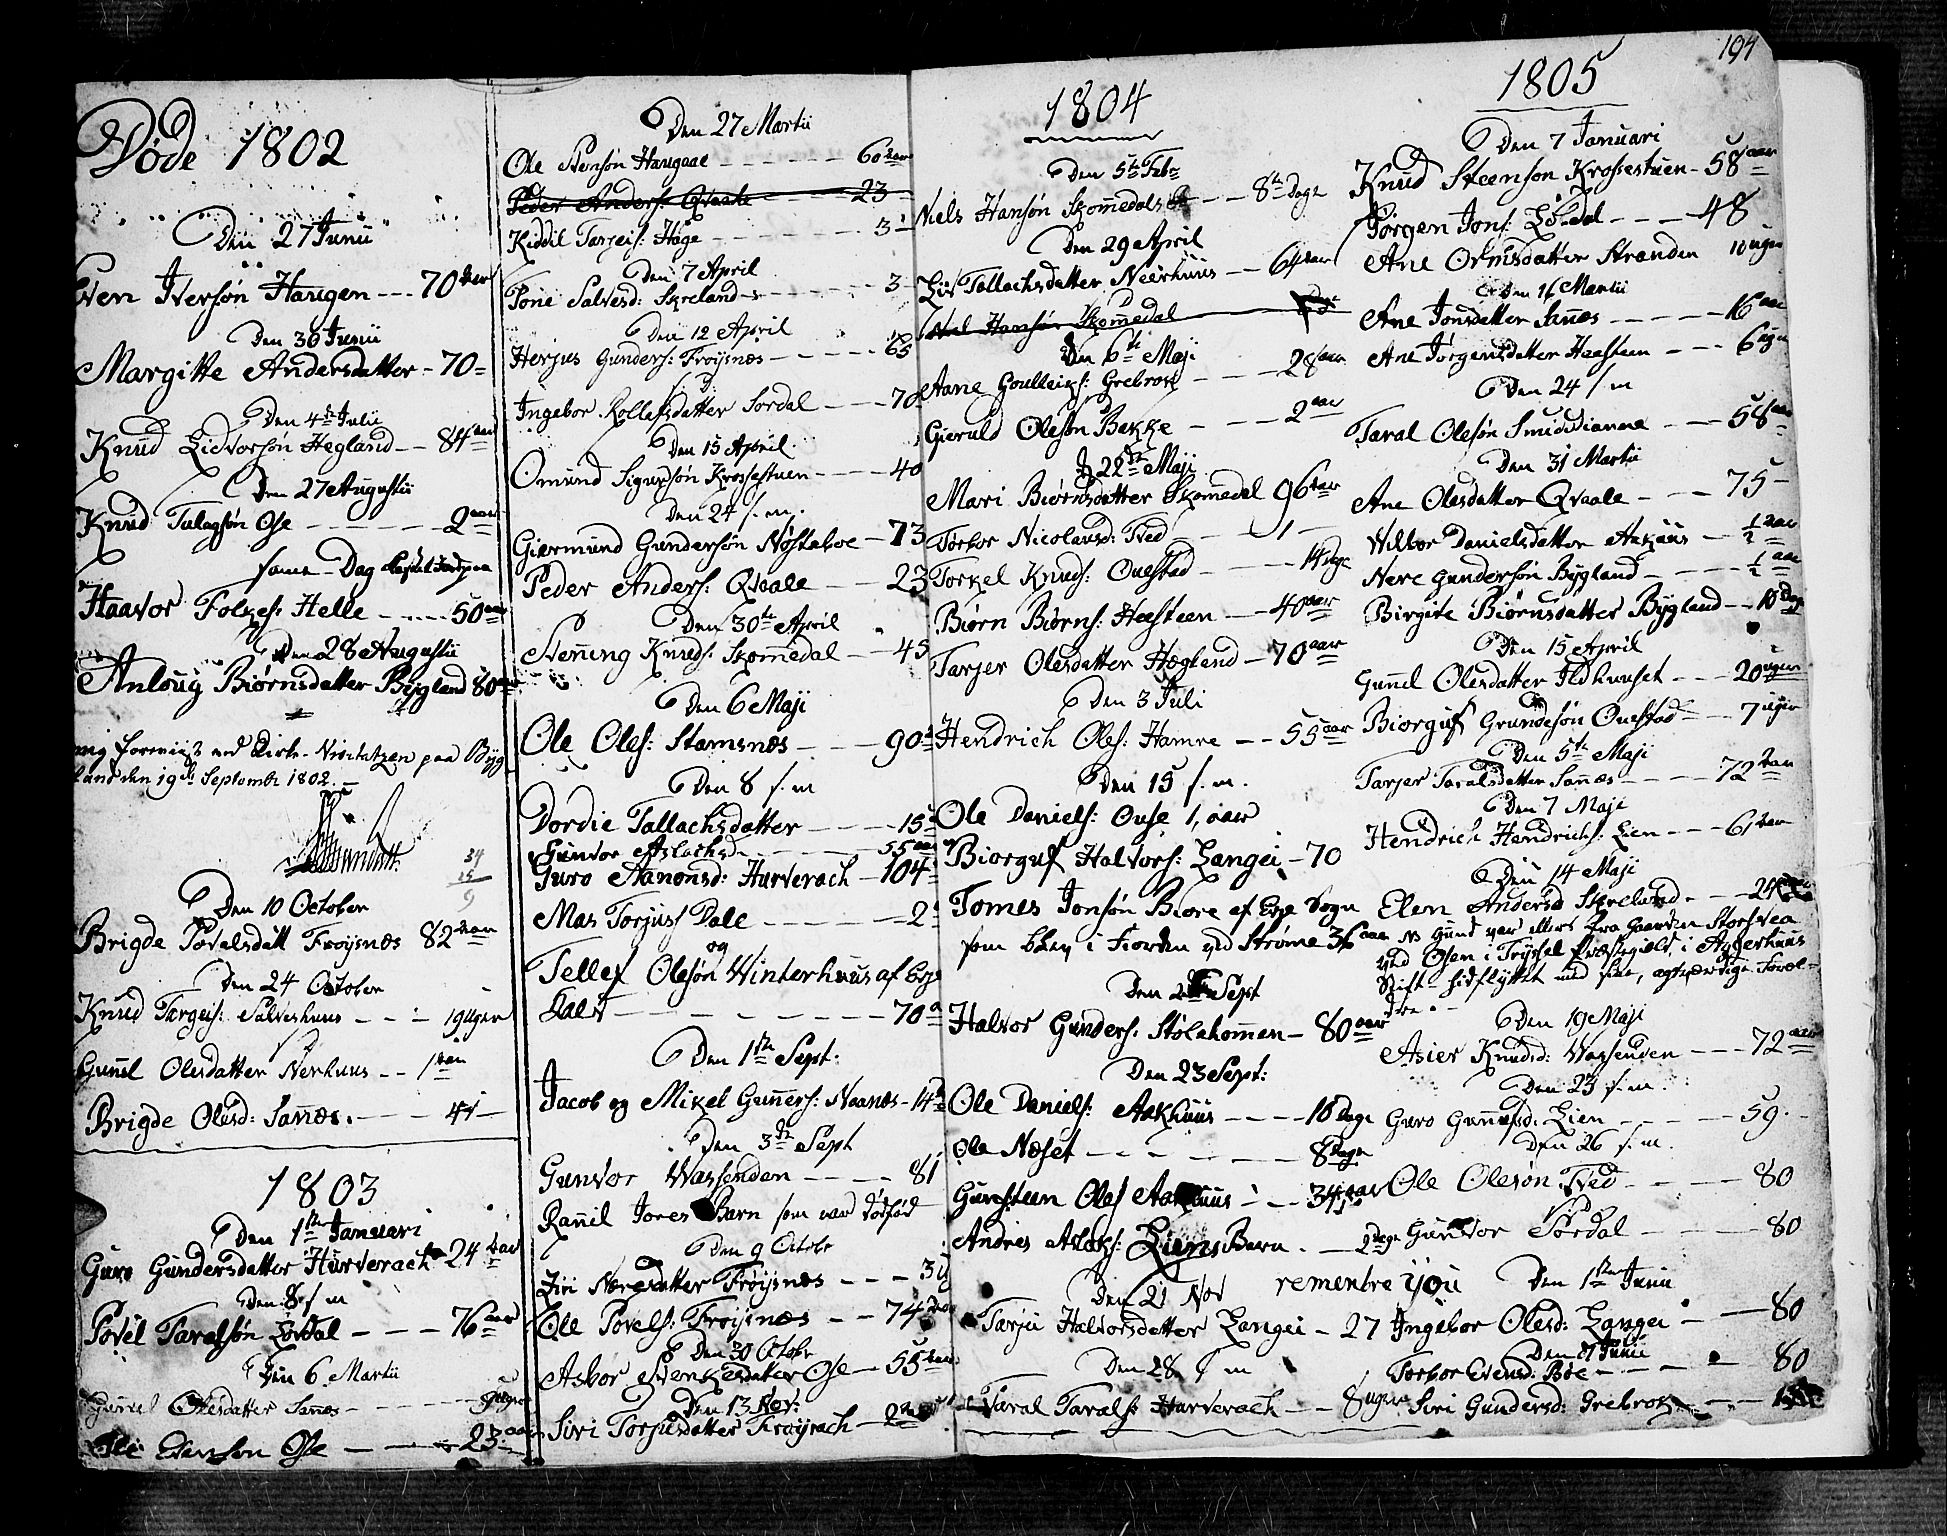 Døde 1802
Den 27 Junii
Sven Iversøn Haugen --- 70 aar
Den 30 Junii
Margitte Andersdatter - 70
Den 4de Julii
Knud Lidvorsøn Hegland -- 84 aar
Den 27 Augustii
Knud Tulagsøn Ose ---- 2 aar
samme Dag
Haavor Folkes: Helle ---- 50 aar
Den 28 Augustii
Anloug Biørnsdatter Bygland 80 aar
mig foreviist ved Kirke Visitatzen paa Byg
land den 19de Septembr 1802.
34
15
9
Den 10 October
Brigde Povelsdatt Frøysnæs 82 aar
Den 24 October
Knud Targeis: Salveshuus --- 19 uger
Gunil Olesdatter Nerhuus -- 1 aar
Brigde Olesd: Sanæs. --- 41
1803
Den 1ste Januari
Guro Gundersdatter Hurverach 24 aar
Den 8 s. m
Povel Taralsøn Lovdal --- 76 aar
Den 6 Martii
Gunil Olesdatter Sanæs ---
Ole Evensøn Ose --- 23 aar
Den 27 Martii
Ole Stensøn Haugaae ----- 60 aar
Peder Anders: Qvaale --- 23
Kiddil Tarjeis: Hage ----- 3
Den 7 April
Tone Salvesd: Skreland ---- 3
Den 12 April
Herjus Gunders: Frøisnæs ---- 65
s. D:
Ingebor Rollefsdatter Sordal --- 70
Den 15 April
Omund Sigursøn Krossestuen --- 40
Den 24 s. m.
Giermund Gundersøn Nøstaboe - 73
Peder Anders: Qvaale --- 23
Den 30te April
Stening Knuds: Skomedal --- 45
Den 6 Maji
Ole Oles: Stamsnæs --- 90
Den 8 s. m
Dordie Tallachsdatter --- 15
Gunvor Aslachsd ---- 55 aar
Guro Aanonsd: Hurverach - 104
Mas Torjus Dale ---- 2
og
Tellef Olesøn Winterhuus af Evje
Sales ------- 70 a
Den 1ste Sept:
Jacob og Mikel Guners: Naanæs - 14 d
Den 3de Sept
Gunvor Wassenden --- 81
Ranil Jores Barn som var dødfød
Den 9 Octobr
Liri Neresdatter Frøysnæs --- 3 u
Ole Povels: Frøysnæs --- 74
Den 30 Octobr
Asbor Svenkesdatter Ose -- 55 aar
Den 13 Nov:
Siri Torjusdatter Frøyrach - 2
1804
Den 5te Feb
Niels Hansøn Skomedal -- 8te Dage
Den 29 April
Liv Tallachsdatter Neerhuus -- 64 aar
Niel Hansøn Skomedal
Den 6te Maji
Aane Goulleiks: Grebrok --- 28 aar
Gieruld Olesøn Bakke --- 2 aar
D 22de Maji
Mari Biørnsdatter Skomedal 96 aar
Torbor Nicolausd: Tved --- 1
Torkel Knuds: Ouestad ---- 14 dage
Biørn Biørns: Heesteen -- 40 aar
Tarjer Olesdatter Hægland - 70 aar
Den 3 Juli
Hendrich Oles: Hamre -- 55 aar
Den 15 s. m.
Ole Daniels: Ouse 1, aar
Biorguf Halvors: Langei - 70
Tomes Jonsøn Biore af Evje Sogn
som blev i Fiorden ved Strøme 36 aar
Den 2 Sept
Halvor Gunders: Stølehommen - 80 aar
Den 23 Sept:
Ole Daniels: Aakhuus --- 10 Dage
Ole Næset ------ 8 Dage
Gunsteen Oles Aakhuus --- 34 aar
Andres Aslaks: Liens Barn . - 2 dage
Den 21 Nov
Tarju Halvorsdatter Langei - 27
Den 28 s m
Taral Tarals: Hurverach --- 8 uger
rementre you
194
1805
Den 7 Januari
Knud Steensøn Krossestuen - 58 aar
Jørgen Jons: Lovdal --- 48
Ane Ormsdatter Stranden 10 uger
Den 16 Martii
Ane Jonsdatter Sanæs ----- 16 aar
Ane Jørgensdatter Heesteen --- 6 uger
Den 24 s. m
Taral Olesøn --- 58 aar
Den 31 Martii
Ane Olesdatter Qvaale --- 75
Wilbor Danielsdatter Aakhuus -- 1/2 aar
Nere Gundersøn Bygland --- 1/2 aar
Birgite Biørnsdatter Bygland -- 10 Dag
Den 15 April
Gunil Olesdatter Ildhuuset --- 20 uger
Biorguf Grundesøn Ouestad -- 7 uger
Den 5te Maji
Tarjer Taralsdatter Sanæs --- 72 aar
Den 7 Maji
Hendrich Hendrichs: Lien --- 61 aar
Den 14 Maji
Elen Andersd Skreland --- 24
NB Gund var ellers fra Gaarden Storsvea
ved Osen i Trysel Præstegield, i Aggerhuus
Stift hidflyttet med sine, agtværdige Foræl-
dre.
Den 19 Maji
Asier Knudsd: Wassenden --- 72 aar
Den 23 s. m.
Guro Gunufsd: Lien ---- 59.
Den 26 s. m.
Ole Olesøn Tved ---- 80
Gunvor Sordal ---- 80
Den 1ste Junii
Ingebor Olesd: Langei --- 80
Den Junii
Torbor Evensd: Bøe --- 80
Siri Gundersd: Grebrok ---